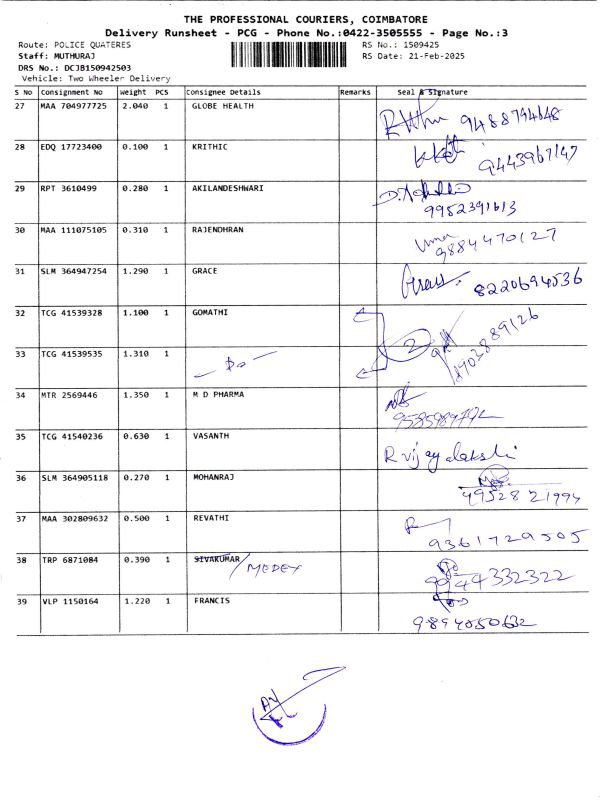 THE PROFESSIONAL COURIERS, COIMBATORE
Delivery Runsheet - PCG - Phone No.:0422-3505555 - Page No.:3
Route: POLICE QUATERES RS No.: 1509425
Staff: MUTHURAJ RS Date: 21-Feb-2025
DRS No.: DCJB150942503
Vehicle: Two Wheeler Delivery
S No Consignment No Weight PCS Consignee Details Remarks Seal & Signature
27 MAA 704977725 2.040 1 GLOBE HEALTH 9488794648
28 EDQ 17723400 0.100 1 KRITHIC 9443967147
29 RPT 3610499 0.280 1 AKILANDESHWARI
9952391613
30 MAA 111075105 0.310 1 RAJENDHRAN Uma
9884470127
31 SLM 364947254 1.290 1 GRACE 8220694536
32 TCG 41539328 1.100 1 GOMATHI 2
33 TCG 41539535 1.310 1 - Do -
34 MTR 2569446 1.350 1 M D PHARMA
35 TCG 41540236 0.630 1 VASANTH R vijayalakshi
36 SLM 364905118 0.270 1 MOHANRAJ
37 MAA 302809632 0.500 1 REVATHI
9361729505
38 TRP 6871084 0.390 1 SIVAKUMAR / MEDEX
9944332322
39 VLP 1150164 1.220 1 FRANCIS
9894050632